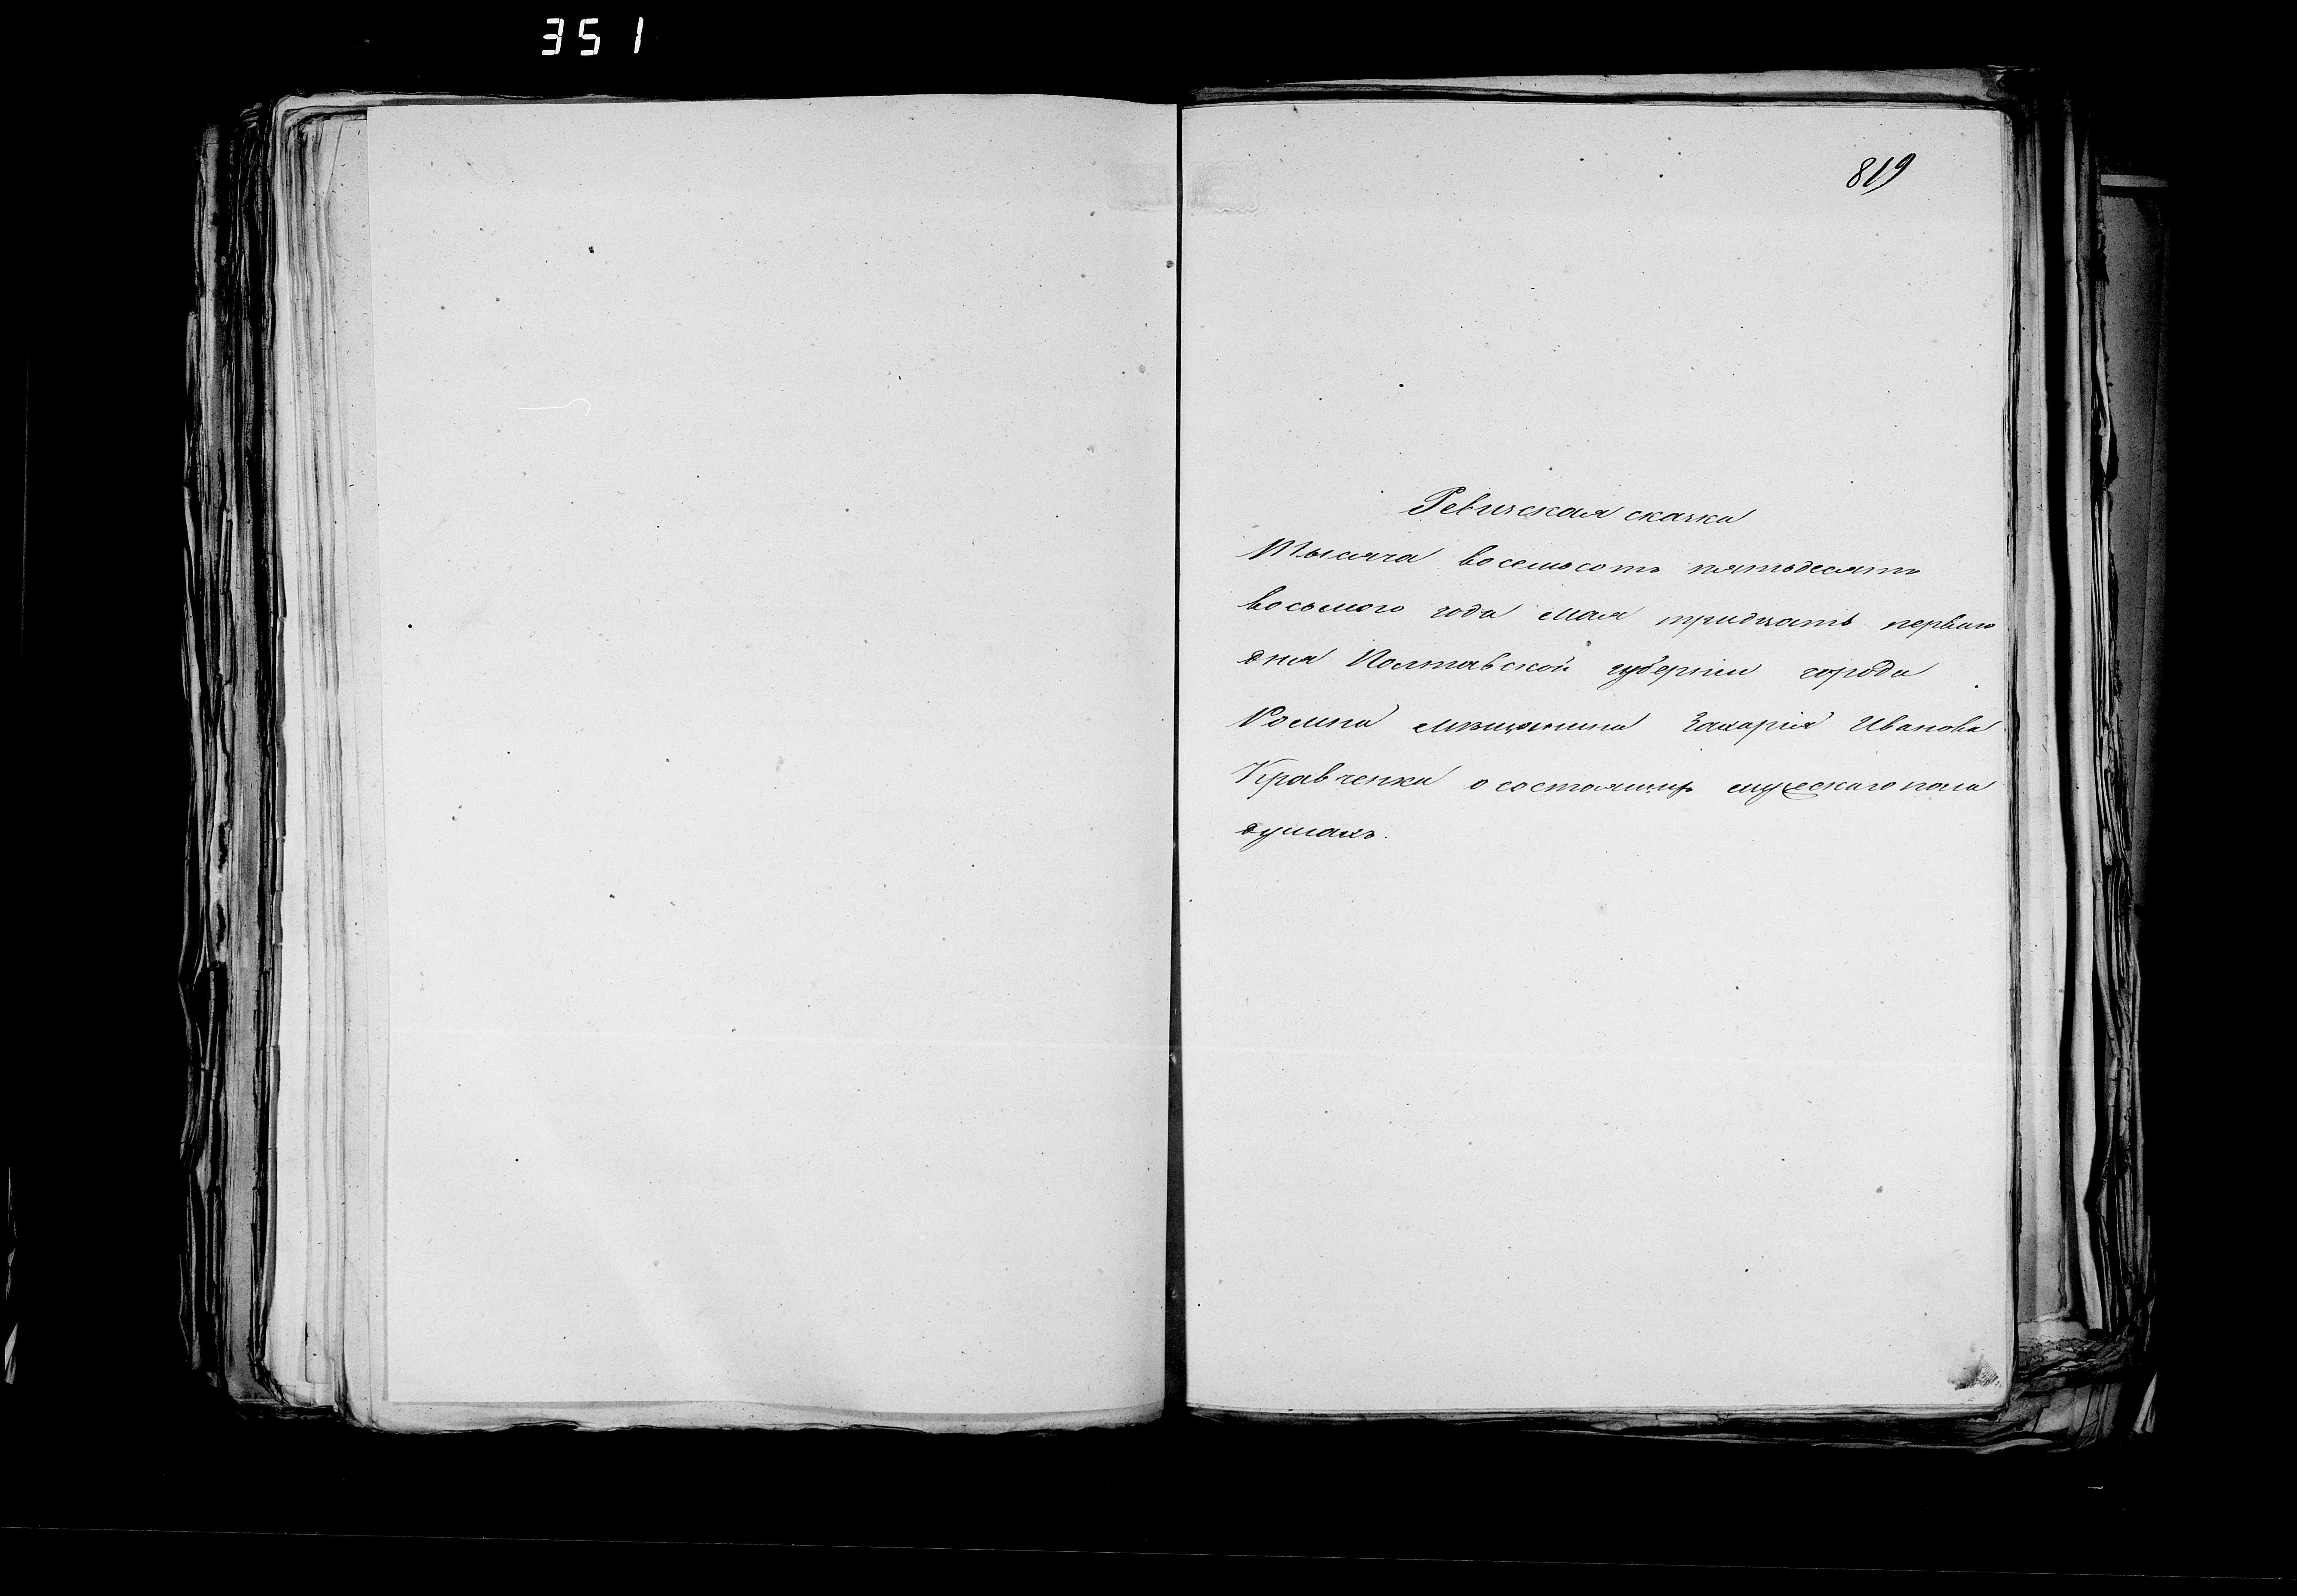 351
819
Ревизская сказка
Тысяча восемьсотъ пятьдесятъ
восьмого года Мая тридцать перваго
дня Полтавской губерніи города
Ромна мѣщанина Захарія Иванова
Кравченка о состоящихъ мужескаго пола
душахъ.